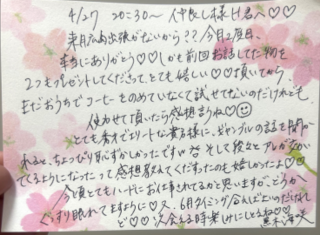 4/27 20:30〜 仲良し様 H君へ♡♡
来月広島出張がないから?? 今月2度目、
本当にありがとう♡♡しかも前回お話してた物を
2つもプレゼントしてくださって、とても嬉しい♡♡頂いてから、
まだおうちでコーヒーをのめていなくて試せてないのだけれども、
使わせて頂いたら感想言うね♡☺
とても秀才でエリートな貴方様に、ギャンブルの話を聞か
れると、ちょっぴり恥ずかしかったですw そして段々とアレが
てくるようになったって感想教えてくださったのも嬉しかったよ♡♡
今頃とてもハードにお仕事されてるかと思いますが、どうか
ぐっすり眠れてますように♡ 又、6月タイミング合えばでいいのだけれ
ど♡♡ 次会える時楽しみにしてるね♡♡